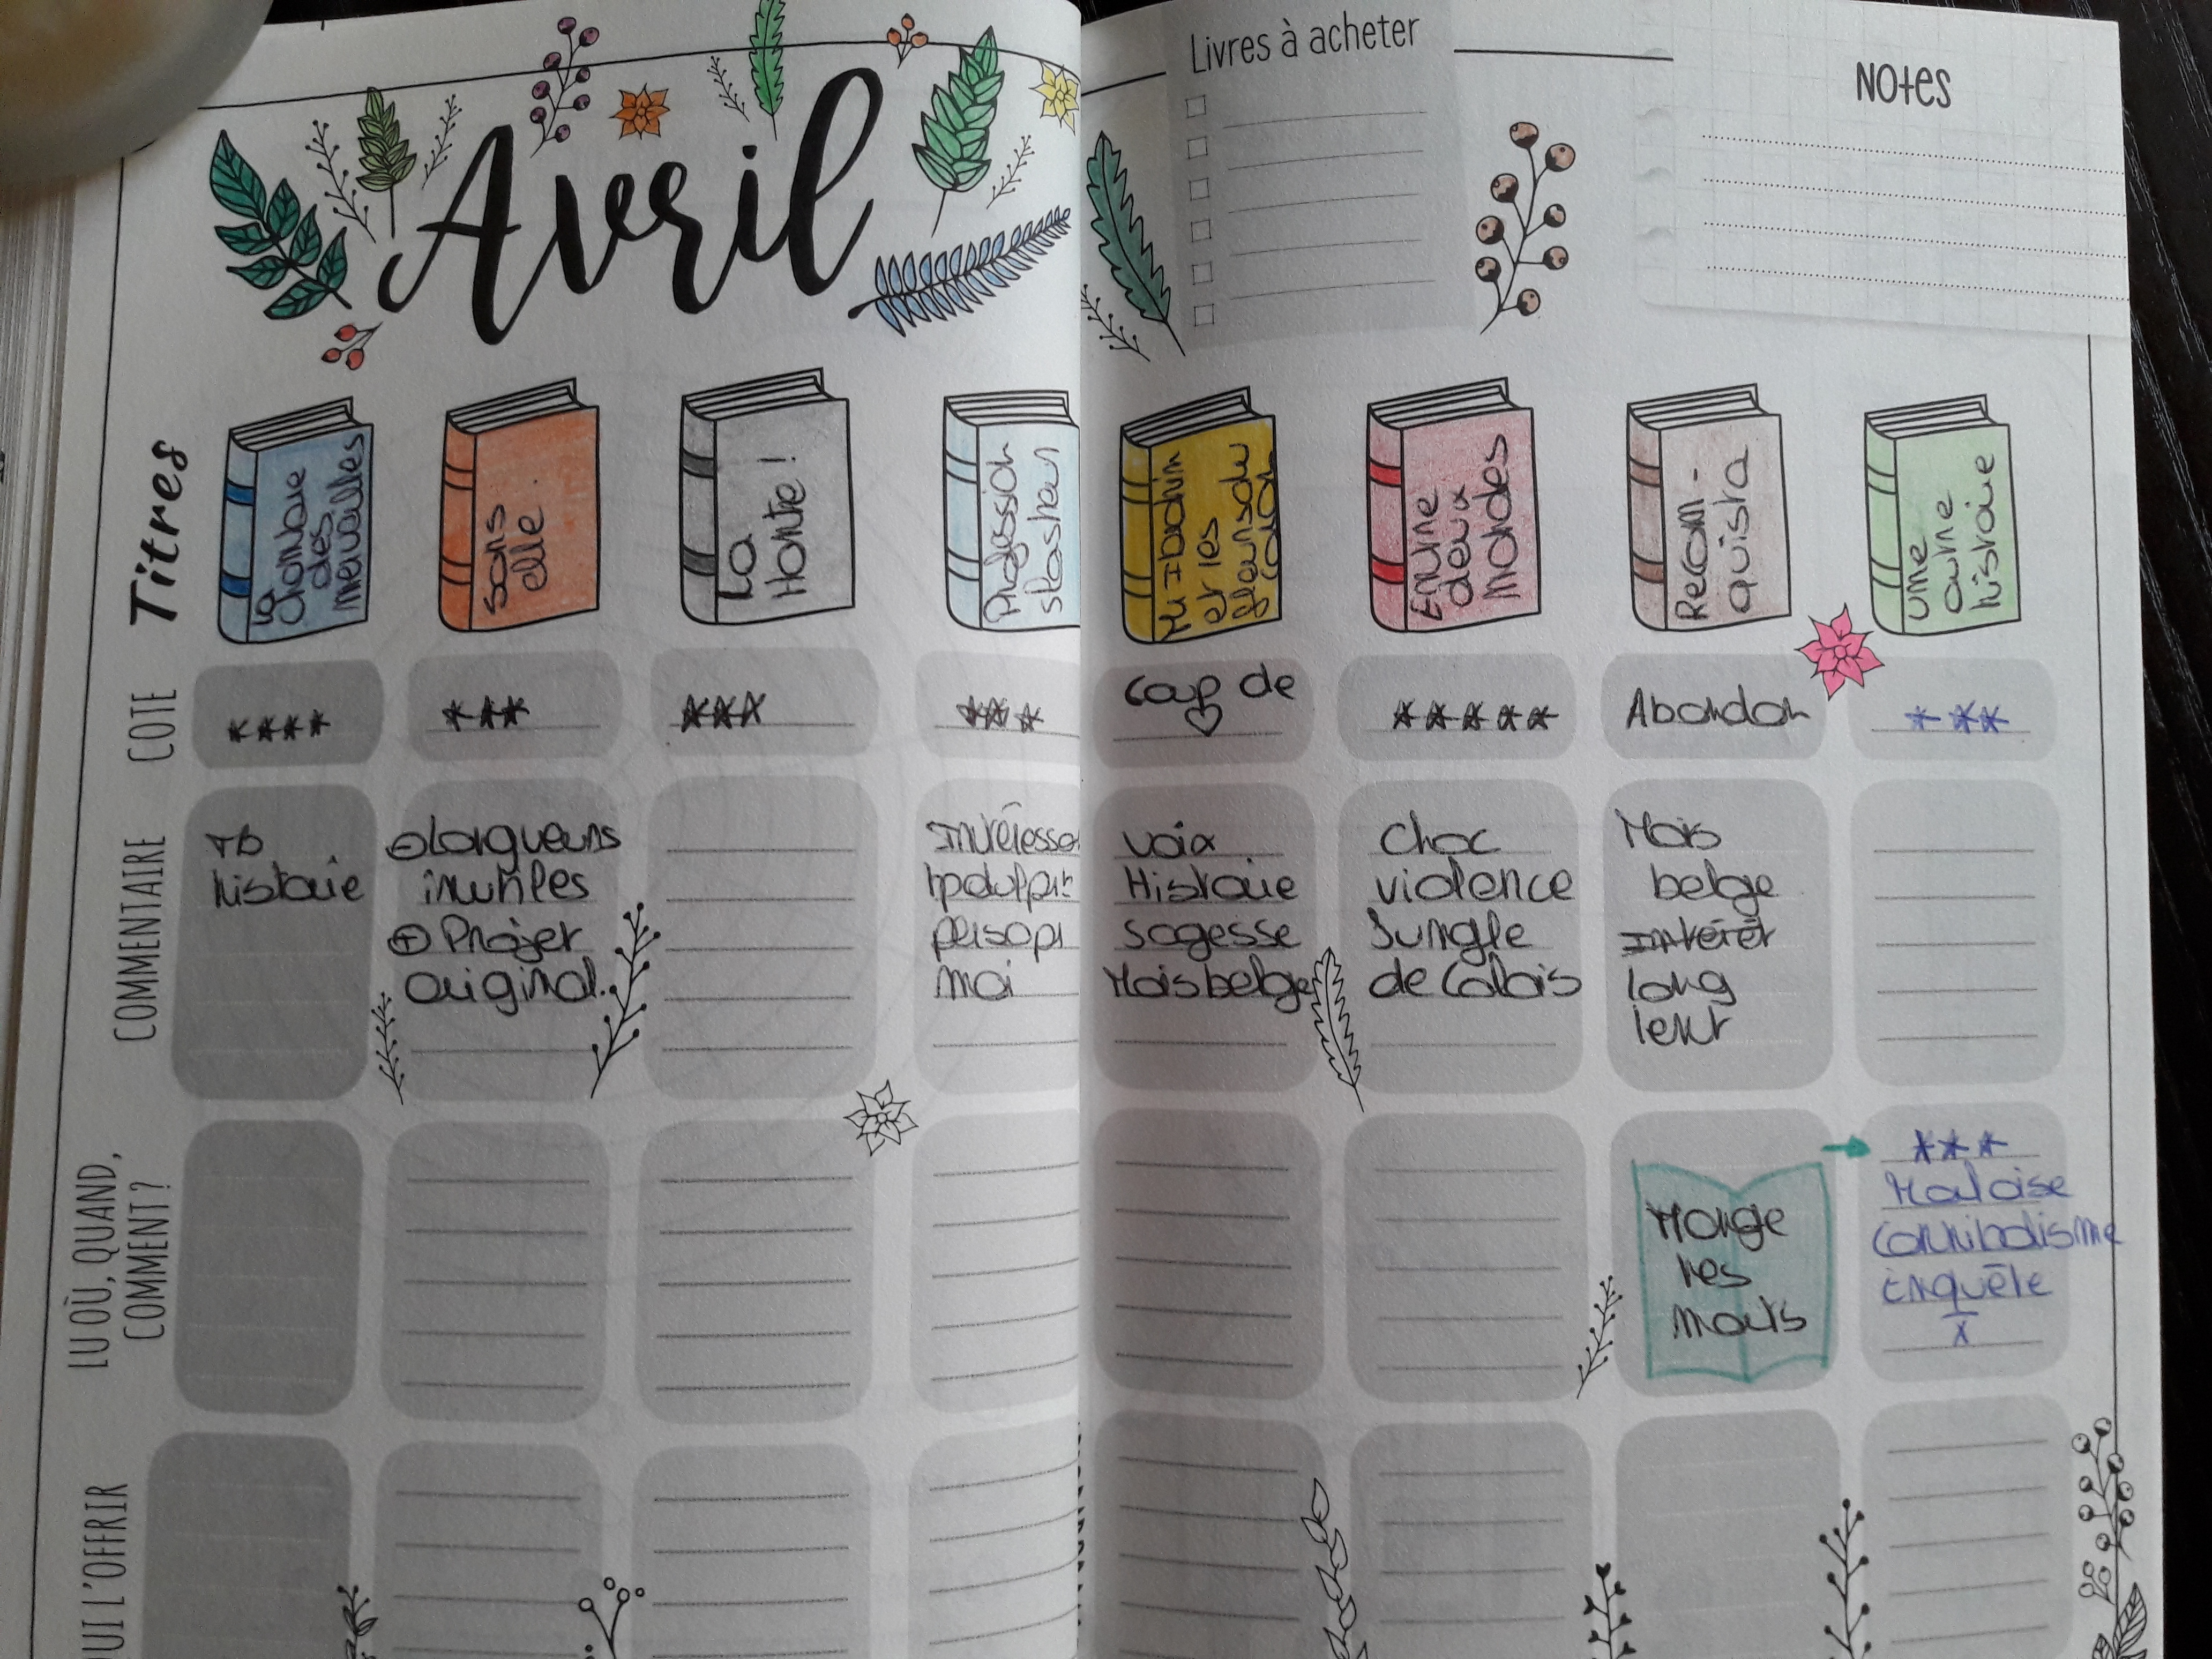 Avril
Livres à acheter
Notes
Titres
La
Chronique
des
merveilles
Sans
elle.
La
Honte!
Profession
slasheur
Mr Ibrahim
et les
fleurs du
Coran
Entre
deux
mondes
Recon-
quista
Une
autre
histoire
COTE
****
***
***
***
Coup de
♡
*****
Abandon
***
COMMENTAIRE
Tb
histoire
⊖ Longueurs
inutiles
⊕ Projet
original.
Intéressa
mai
voix
Histoire
sagesse
Mois belge
Choc
violence
Jungle
de Calais
Mois
belge
Intérêt
long
lent
LU OÙ, QUAND,
COMMENT?
Mange
tes
morts
→ ***
Malaise
Cannibalisme
Enquête
X
QUI L'OFFRIR